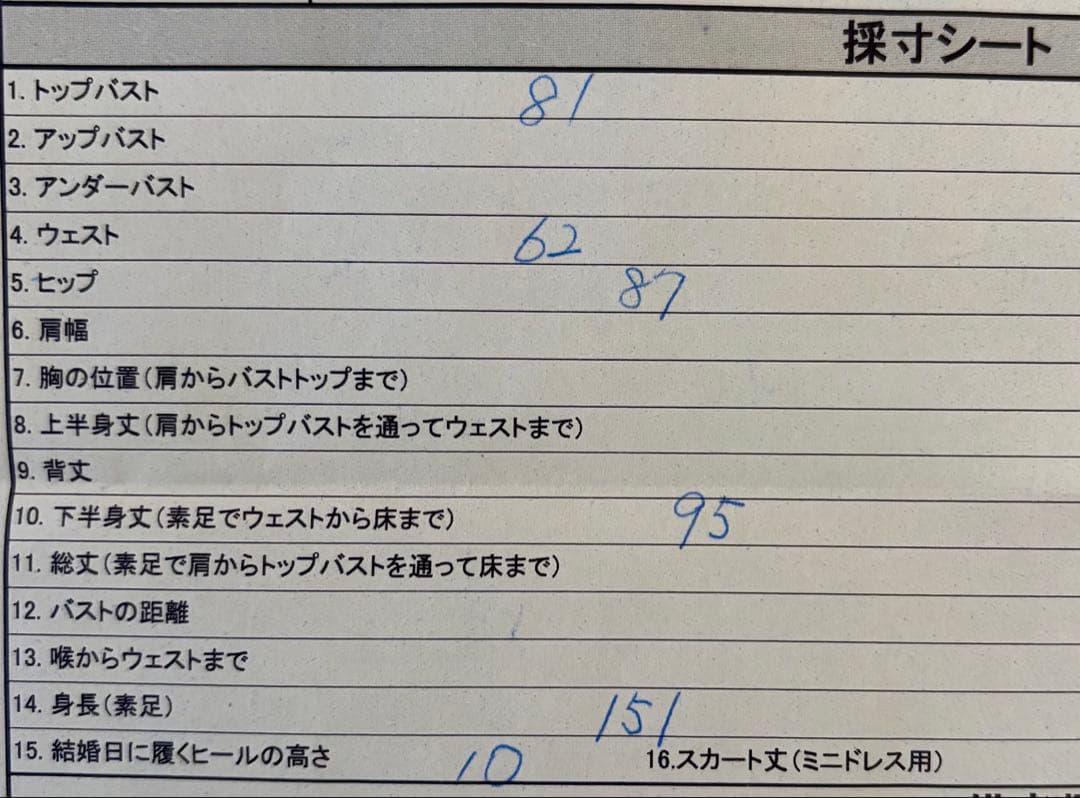 採寸シート
1. トップバスト 81
2. アップバスト
3. アンダーバスト
4. ウェスト 62
5. ヒップ 87
6. 肩幅
7. 胸の位置(肩からバストトップまで)
8. 上半身丈(肩からトップバストを通ってウェストまで)
9. 背丈
10. 下半身丈(素足でウェストから床まで) 95
11. 総丈(素足で肩からトップバストを通って床まで)
12. バストの距離
13. 喉からウェストまで
14. 身長(素足) 151
15. 結婚日に履くヒールの高さ 10 16.スカート丈(ミニドレス用)